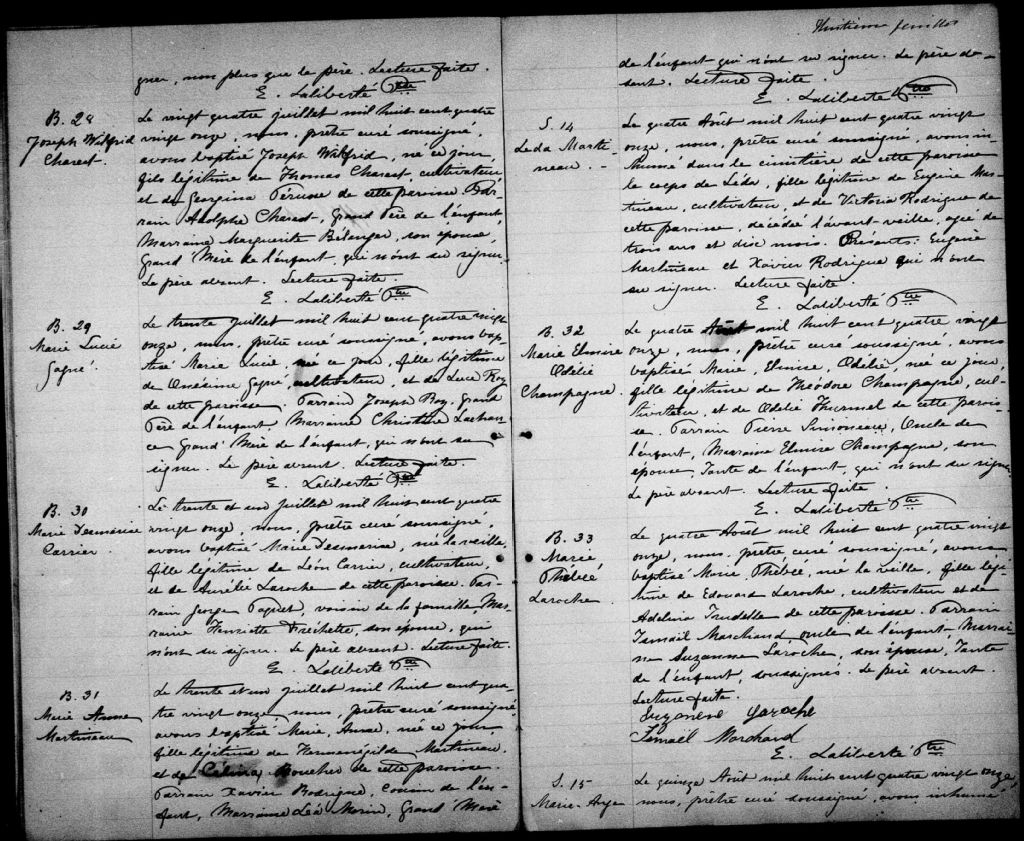 gner, non plus que le père. Lecture faite.
E. Laliberté Ptre
B. 28
Joseph Wilfrid
Charest.
Le vingt quatre juillet mil huit cent quatre
vingt onze, nous, prêtre curé soussigné,
avons baptisé Joseph Wilfrid, né ce jour,
fils légitime de Thomas Charest, cultivateur
et de Georgina Pérusse de cette paroisse. Par-
rain Adolphe Charest, Grand Père de l'enfant,
Marraine Marguerite Bélanger, son épouse,
Grand Mère de l'enfant, qui n'ont su signer.
Le père absent. Lecture faite.
E. Laliberté Ptre
B. 29
Marie Lucie
Gagné.
Le trente juillet mil huit cent quatre vingt
onze, nous, prêtre curé soussigné, avons bap-
tisé Marie Lucie, née ce jour, fille légitime
de Onésime Gagné, cultivateur, et de Luce Roy
de cette paroisse. Parrain Joseph Roy, grand
Père de l'enfant, Marraine Christine Lachan-
ce Grand' Mère de l'enfant, qui n'ont su
signer. Le père absent. Lecture faite.
E. Laliberté Ptre
B. 30
Marie Desmarise
Carrier.
Le trente et un juillet mil huit cent quatre
vingt onze, nous, prêtre curé soussigné,
avons baptisé Marie Desmarise, née la veille,
fille légitime de Léon Carrier, cultivateur,
et de Aurélie Laroche de cette paroisse. Par-
rain George Paquet, voisin de la famille, Mar-
raine Henriette Fréchette, son épouse, qui
n'ont su signer. Le père absent. Lecture faite.
E. Laliberté Ptre
B. 31
Marie Anna
Martineau
Le trente et un juillet mil huit cent qua-
tre vingt onze, nous, prêtre curé soussigné
avons baptisé Marie, Anna, née ce jour,
fille légitime de Herménégilde Martineau,
et de Célina Boucher de cette paroisse.
Parrain Xavier Rodrigue, Cousin de l'en-
fant, Marraine Léa Morin, Grand' Mère
Huitième feuillet
de l'enfant qui n'ont su signer. Le père ab-
sent. Lecture faite.
E. Laliberté Ptre
S. 14
Léda Marti-
neau.
Le quatre Août mil huit cent quatre vingt
onze, nous, prêtre curé soussigné, avons in-
humé dans le cimetière de cette paroisse
le corps de Léda, fille légitime de Eugène Mar-
tineau, cultivateur, et de Victoria Rodrigue de
cette paroisse, décédé l'avant-veille, agée de
trois ans et dix mois. Présents: Eugène
Martineau et Xavier Rodrigue qui n'ont
su signer. Lecture faite.
E. Laliberté Ptre
B. 32
Marie Elmire
Odélie
Champagne.
Le quatre Août mil huit cent quatre vingt
onze, nous, prêtre curé soussigné, avons
baptisée Marie, Elmire, Odélie, née ce jour,
fille légitime de Théodore Champagne, cul-
tivateur, et de Odélie de cette parois-
se. Parrain Pierre Simoneau, Oncle de
l'enfant, Marraine Elmire Champagne, son
épouse, Tante de l'enfant, qui n'ont su signer.
Le père absent. Lecture faite.
E. Laliberté Ptre
B. 33
Marie
Phébée
Laroche
Le quatre Août mil huit cent quatre vingt
onze, nous, prêtre curé soussigné, avons
baptisé Marie, Phébée, née la veille, fille légi-
time de Edouard Laroche, cultivateur et de
Adelina Trudelle de cette paroisse. Parrain
Ismaïl Marchand, oncle de l'enfant, Marrai-
ne Suzanne Laroche, son épouse, Tante
de l'enfant, soussignés. Le père absent.
Lecture faite.
Suzanne Laroche
Ismaël Marchand
E. Laliberté Ptre
S. 15
Marie-Ange
Le quinze Août mil huit cent quatre vingt onze,
nous, prêtre curé soussigné, avons inhumé